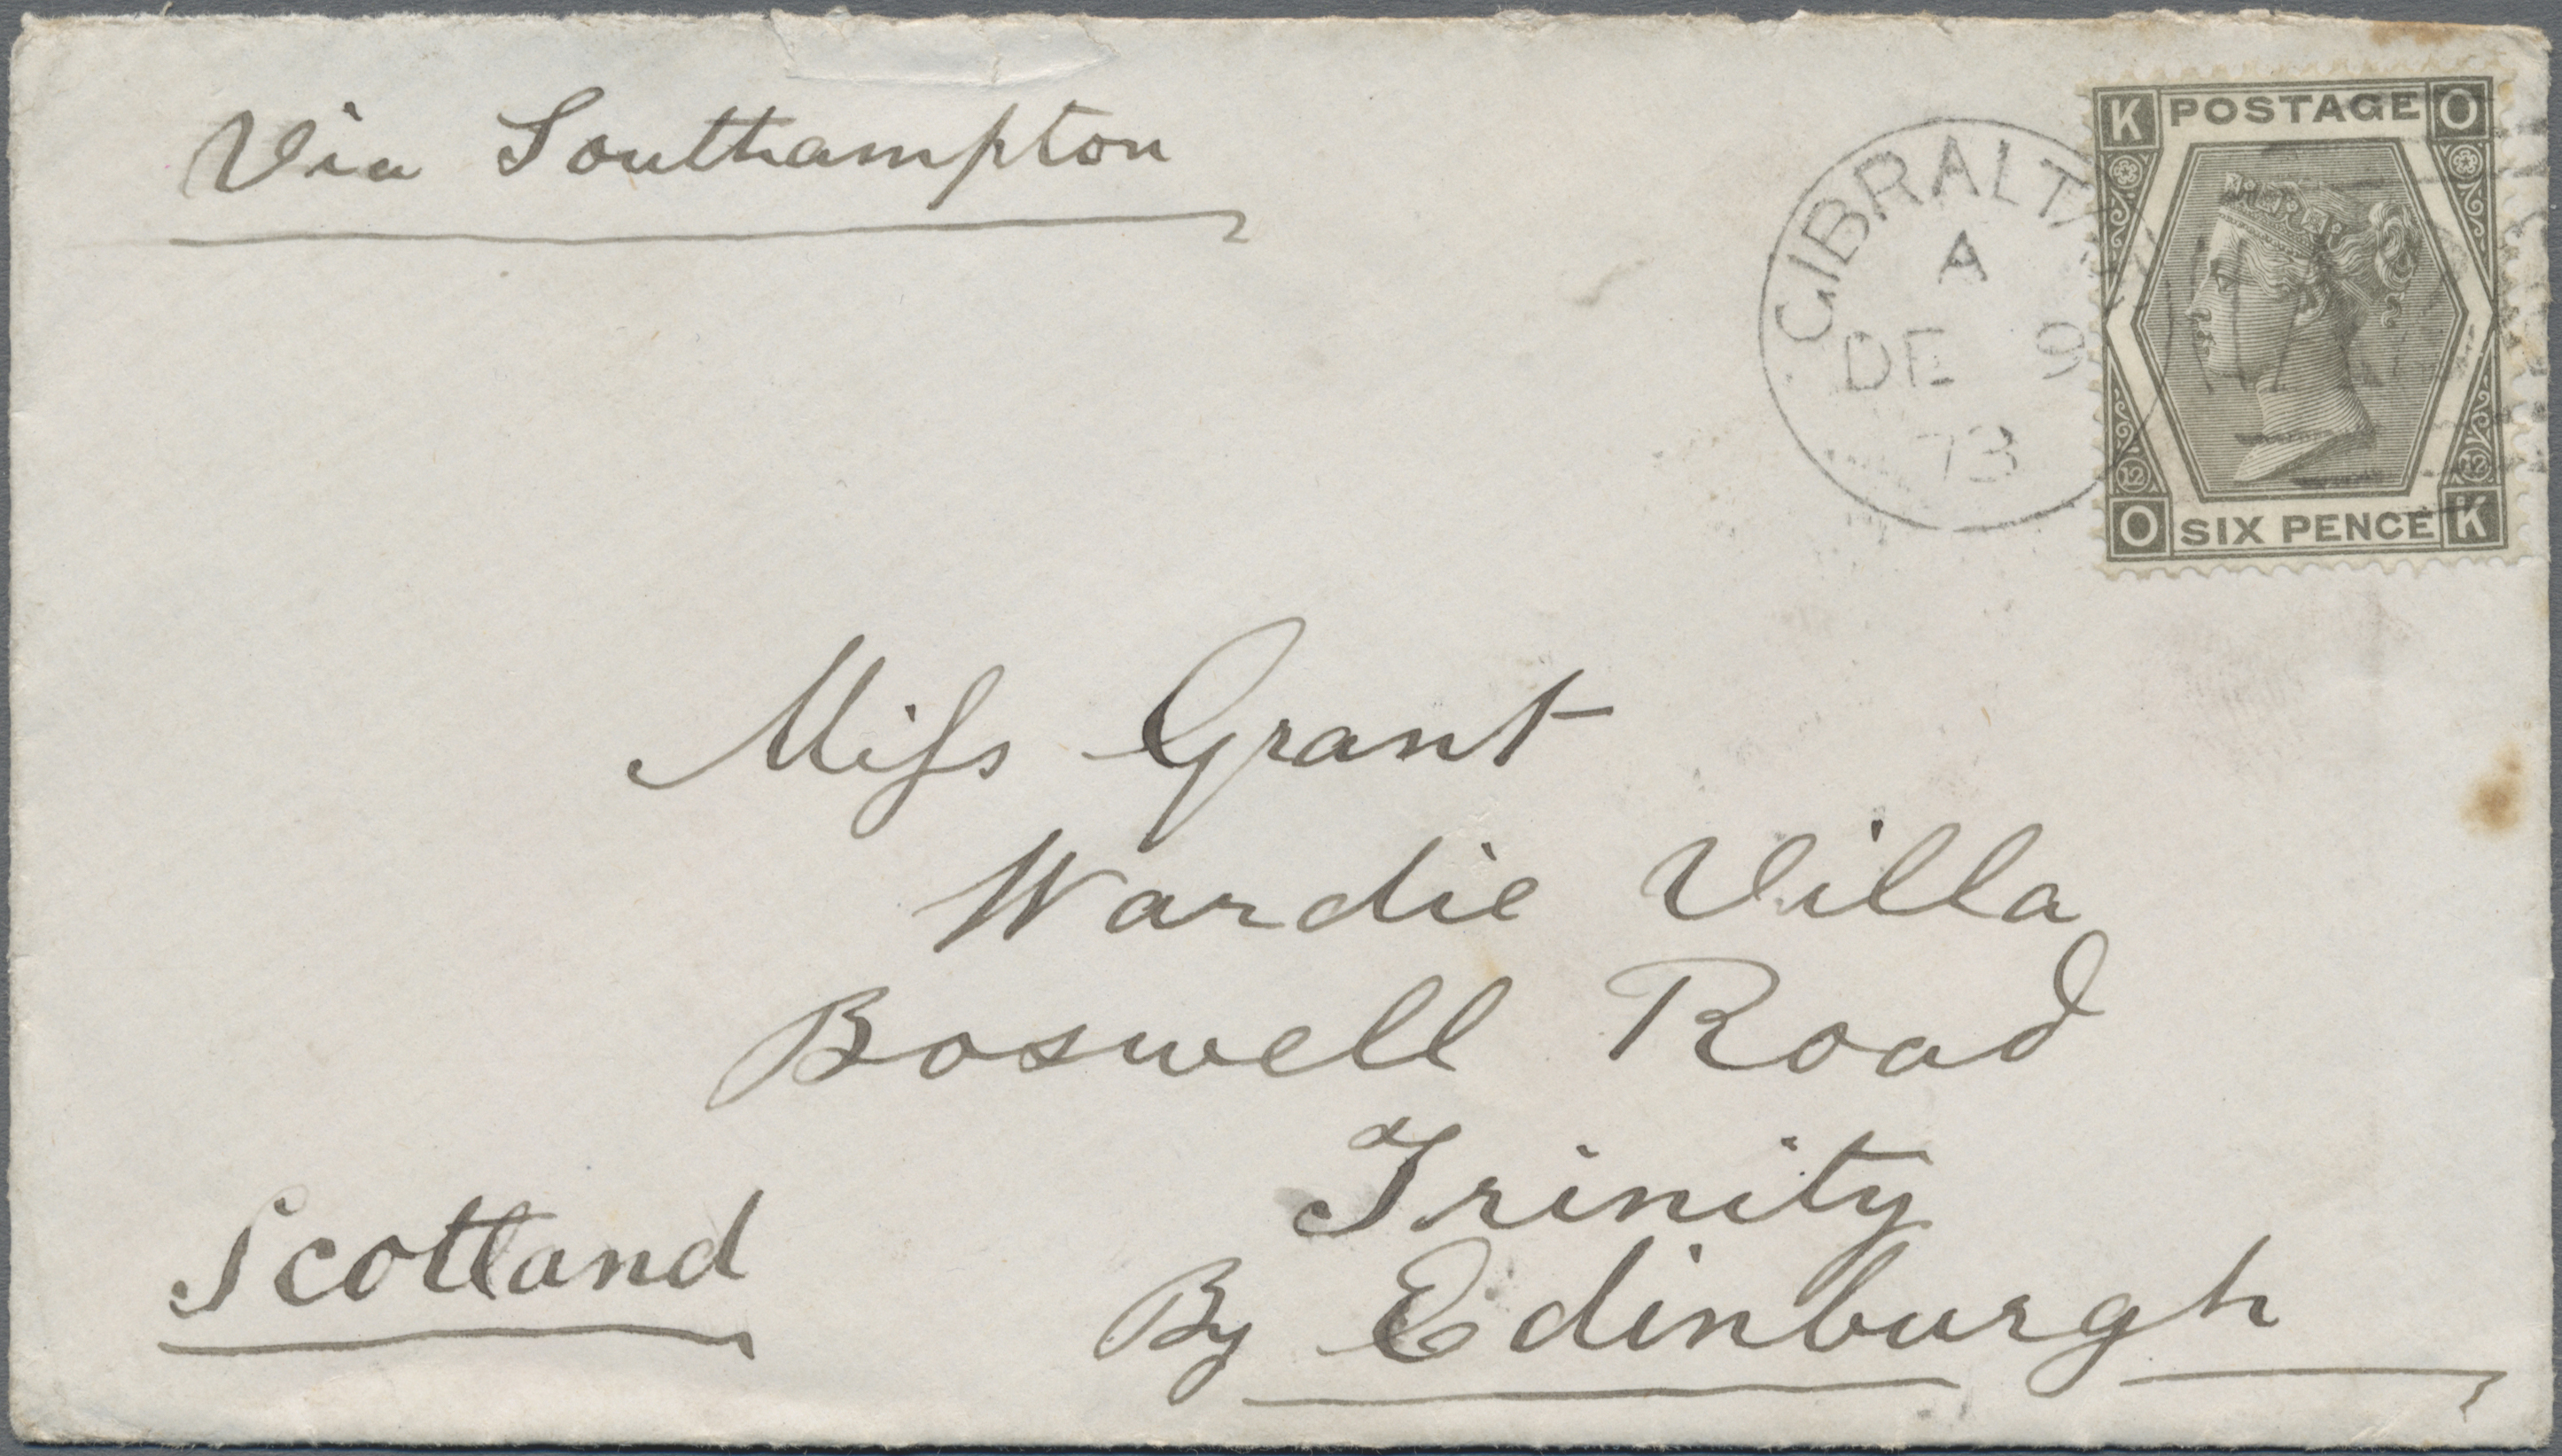 Via Southampton
GIBRALTA
A
DE 9
73
K POSTAGE O
12 12
O SIX PENCE K
Miſs Grant
Wardie Villa
Boswell Road
Trinity
By Edinburgh
Scotland